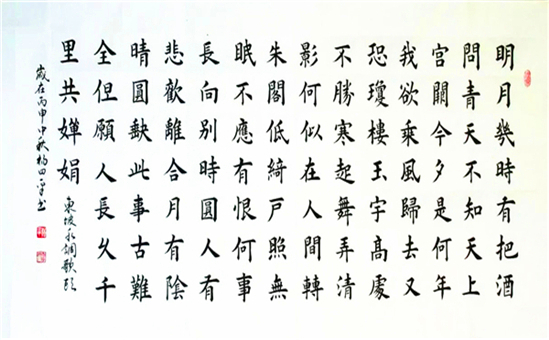 明月幾時有把酒
問青天不知天上
宮闕今夕是何年
我欲乘風歸去又
恐瓊樓玉宇高處
不勝寒起舞弄清
影何似在人間轉
朱閣低綺戶照無
眠不應有恨何事
長向别時圓人有
悲歡離合月有陰
晴圓缺此事古難
全但願人長久千
里共嬋娟
東坡水調歌頭
歲在丙申中秋書